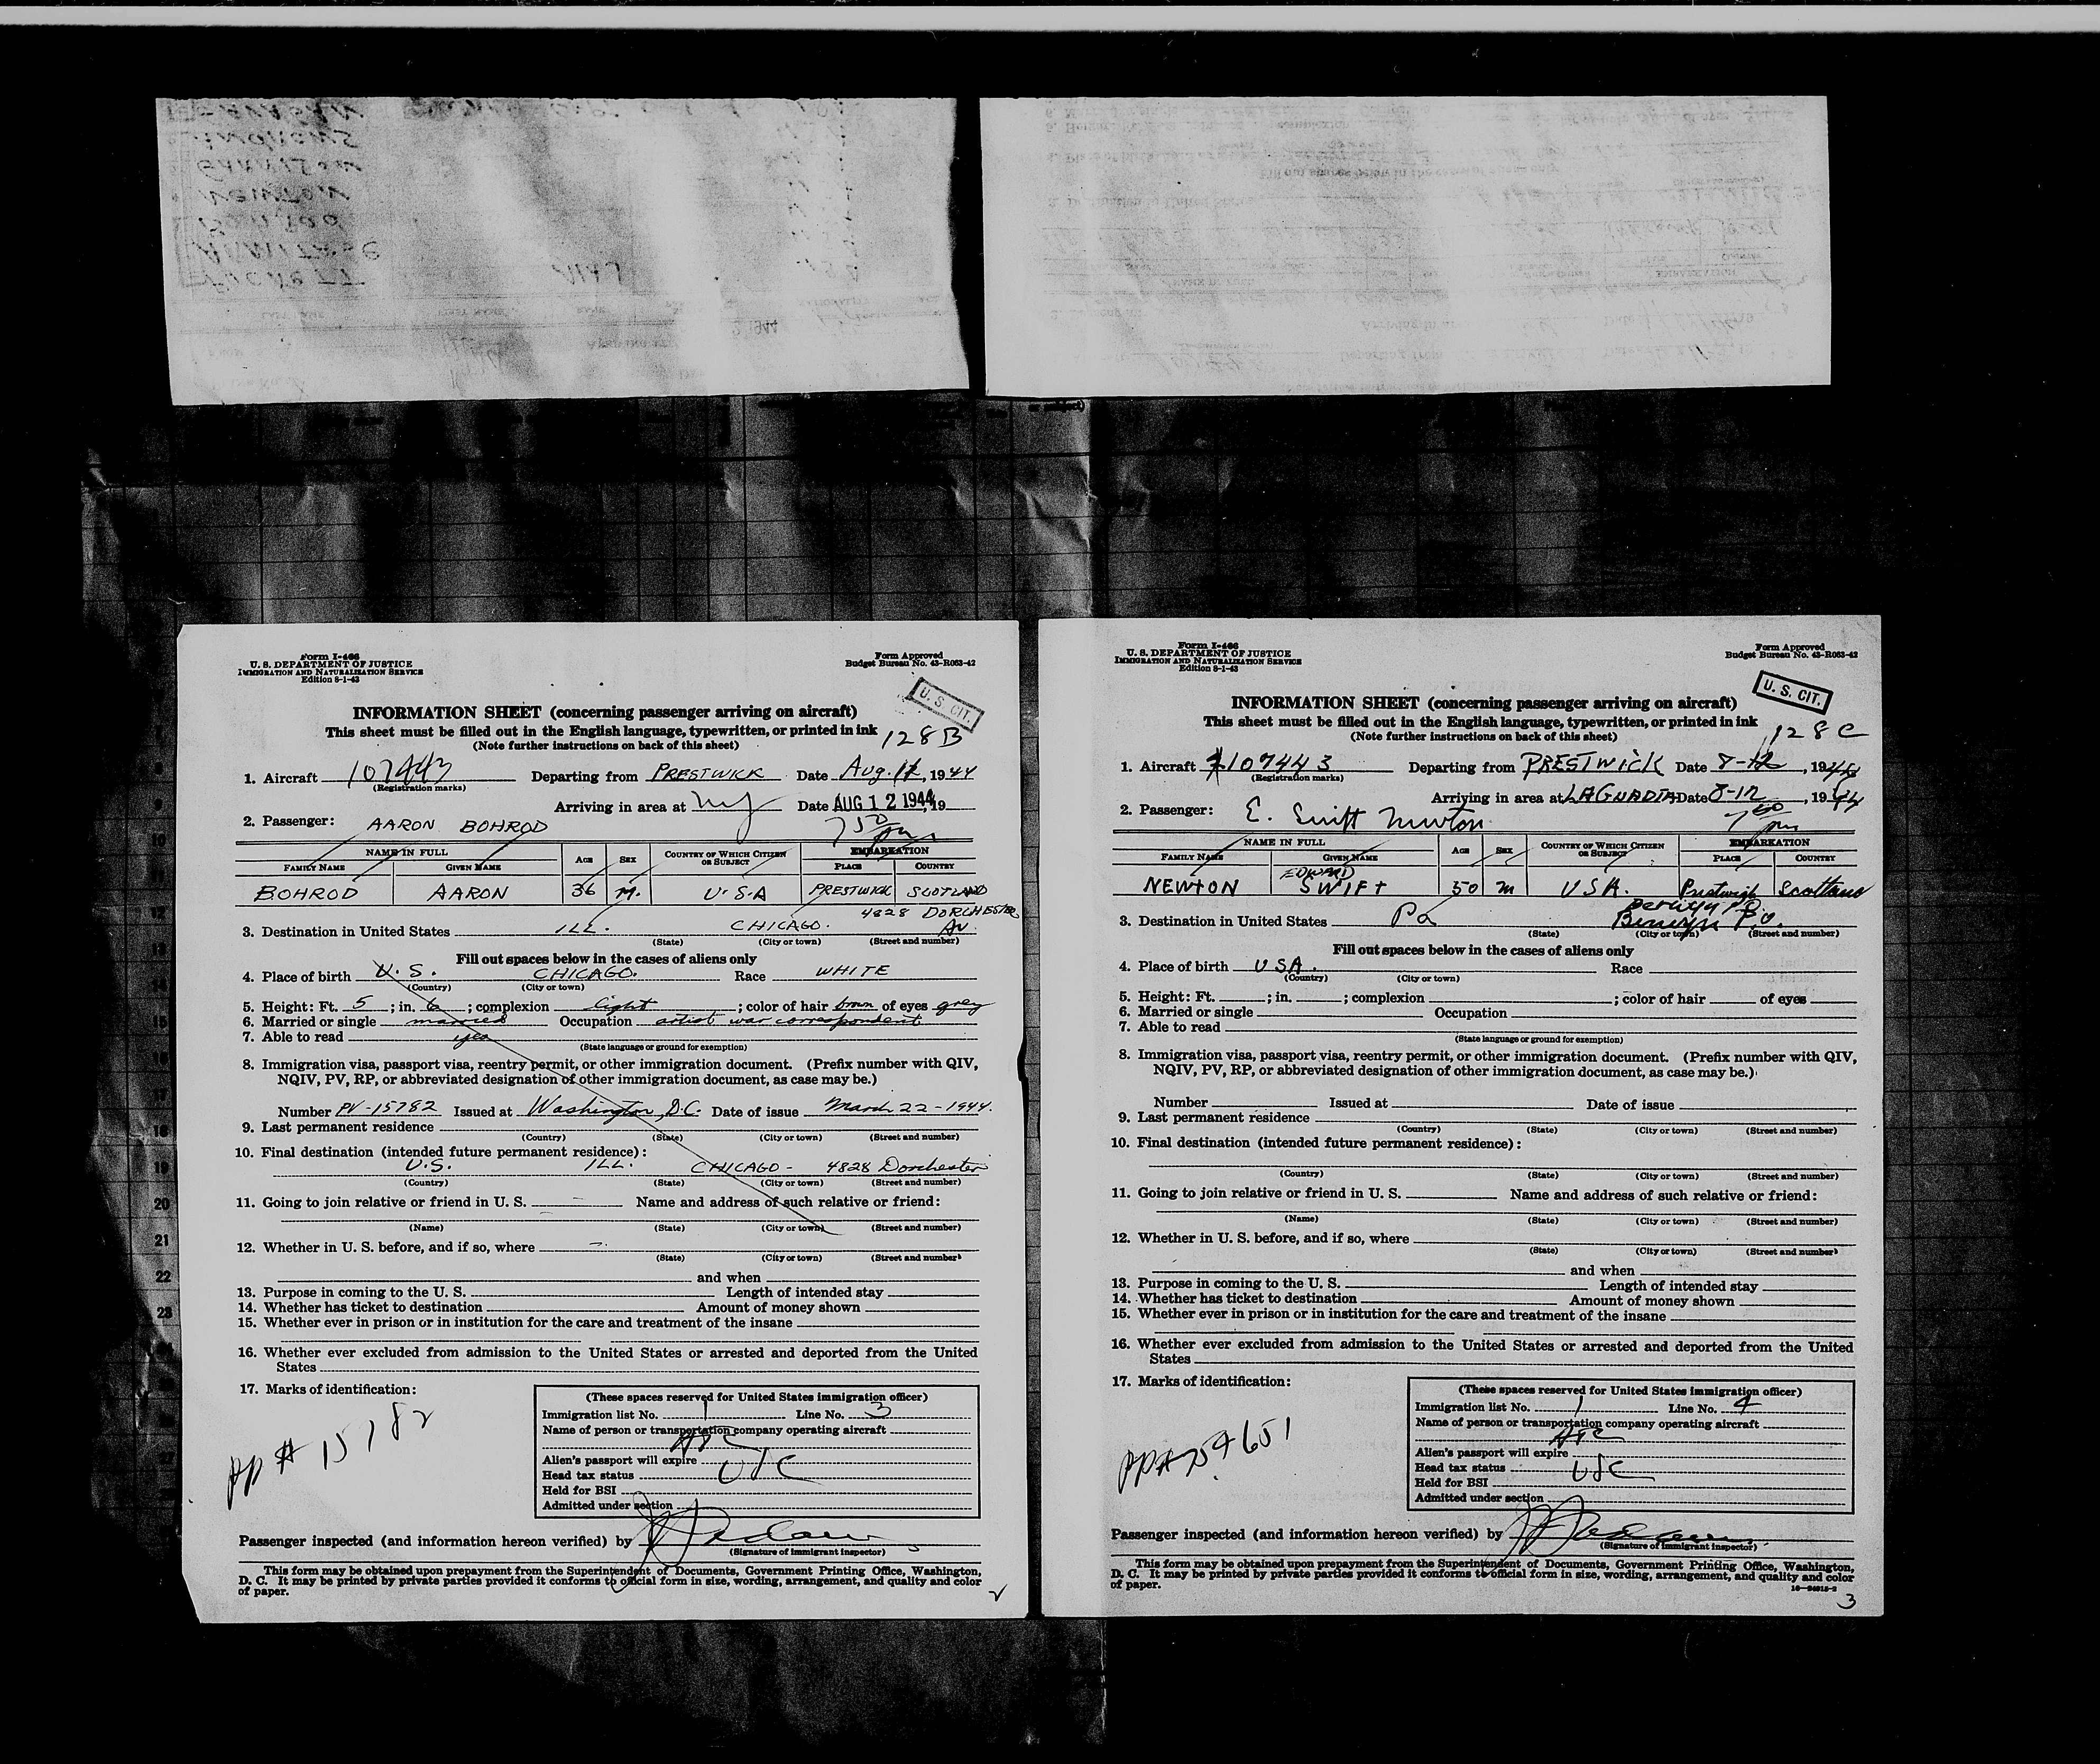 Form I-466
U. S. DEPARTMENT OF JUSTICE
IMMIGRATION AND NATURALIZATION SERVICE
Edition 8-1-43
Form Approved
Budget Bureau No. 43-R063-42
U. S. CIT.
INFORMATION SHEET (concerning passenger arriving on aircraft)
This sheet must be filled out in the English language, typewritten, or printed in ink
(Note further instructions on back of this sheet)
128B
1. Aircraft 107443 Departing from PRESTWICK Date Aug. 12, 1944
(Registration marks)
Arriving in area at NY Date AUG 12 1944, 19
2. Passenger: AARON BOHROD
7 50 pm
NAME IN FULL AGE SEX COUNTRY OF WHICH CITIZEN OR SUBJECT EMBARKATION
FAMILY NAME GIVEN NAME PLACE COUNTRY
BOHROD AARON 36 M. U.S.A PRESTWICK SCOTLAND
3. Destination in United States ILL. CHICAGO. 4828 DORCHESTER Av.
(State) (City or town) (Street and number)
Fill out spaces below in the cases of aliens only
4. Place of birth U.S. CHICAGO. Race WHITE
(Country) (City or town)
5. Height: Ft. 5; in. 6; complexion light; color of hair brown of eyes grey
6. Married or single married Occupation artist war correspondent
7. Able to read yes
(State language or ground for exemption)
8. Immigration visa, passport visa, reentry permit, or other immigration document. (Prefix number with QIV,
NQIV, PV, RP, or abbreviated designation of other immigration document, as case may be.)
Number PV-15782 Issued at Washington, D.C. Date of issue March 22-1944.
9. Last permanent residence
(Country) (State) (City or town) (Street and number)
10. Final destination (intended future permanent residence):
U.S. ILL. CHICAGO- 4828 Dorchester
(Country) (State) (City or town) (Street and number)
11. Going to join relative or friend in U. S. Name and address of such relative or friend:
(Name) (State) (City or town) (Street and number)
12. Whether in U. S. before, and if so, where
(State) (City or town) (Street and number)
and when
13. Purpose in coming to the U. S. Length of intended stay
14. Whether has ticket to destination Amount of money shown
15. Whether ever in prison or in institution for the care and treatment of the insane
16. Whether ever excluded from admission to the United States or arrested and deported from the United
States
17. Marks of identification:
PP # 15782
(These spaces reserved for United States immigration officer)
Immigration list No. 1 Line No. 3
Name of person or transportation company operating aircraft
ATC
Alien's passport will expire
Head tax status USC
Held for BSI
Admitted under section
Passenger inspected (and information hereon verified) by
(Signature of immigrant inspector)
This form may be obtained upon prepayment from the Superintendent of Documents, Government Printing Office, Washington,
D. C. It may be printed by private parties provided it conforms to official form in size, wording, arrangement, and quality and color
of paper.
2
Form I-466
U. S. DEPARTMENT OF JUSTICE
IMMIGRATION AND NATURALIZATION SERVICE
Edition 8-1-43
Form Approved
Budget Bureau No. 43-R063-42
U. S. CIT.
INFORMATION SHEET (concerning passenger arriving on aircraft)
This sheet must be filled out in the English language, typewritten, or printed in ink
(Note further instructions on back of this sheet)
128C
1. Aircraft 107443 Departing from PRESTWICK Date 8-12, 1944
(Registration marks)
Arriving in area at LAGUADIA Date 8-12, 1944
2. Passenger: E. Swift Newton
7 50 pm
NAME IN FULL AGE SEX COUNTRY OF WHICH CITIZEN OR SUBJECT EMBARKATION
FAMILY NAME GIVEN NAME PLACE COUNTRY
NEWTON EDWARD SWIFT 50 M USA. Prestwigh Scotland
3. Destination in United States Pa Berwyn P.O.
(State) (City or town) (Street and number)
Fill out spaces below in the cases of aliens only
4. Place of birth USA. Race
(Country) (City or town)
5. Height: Ft. ; in. ; complexion ; color of hair of eyes
6. Married or single Occupation
7. Able to read
(State language or ground for exemption)
8. Immigration visa, passport visa, reentry permit, or other immigration document. (Prefix number with QIV,
NQIV, PV, RP, or abbreviated designation of other immigration document, as case may be.)
Number Issued at Date of issue
9. Last permanent residence
(Country) (State) (City or town) (Street and number)
10. Final destination (intended future permanent residence):
(Country) (State) (City or town) (Street and number)
11. Going to join relative or friend in U. S. Name and address of such relative or friend:
(Name) (State) (City or town) (Street and number)
12. Whether in U. S. before, and if so, where
(State) (City or town) (Street and number)
and when
13. Purpose in coming to the U. S. Length of intended stay
14. Whether has ticket to destination Amount of money shown
15. Whether ever in prison or in institution for the care and treatment of the insane
16. Whether ever excluded from admission to the United States or arrested and deported from the United
States
17. Marks of identification:
PP# 754651
(These spaces reserved for United States immigration officer)
Immigration list No. 1 Line No. 4
Name of person or transportation company operating aircraft
ATC
Alien's passport will expire
Head tax status USC
Held for BSI
Admitted under section
Passenger inspected (and information hereon verified) by
(Signature of immigrant inspector)
This form may be obtained upon prepayment from the Superintendent of Documents, Government Printing Office, Washington,
D. C. It may be printed by private parties provided it conforms to official form in size, wording, arrangement, and quality and color
of paper.
3